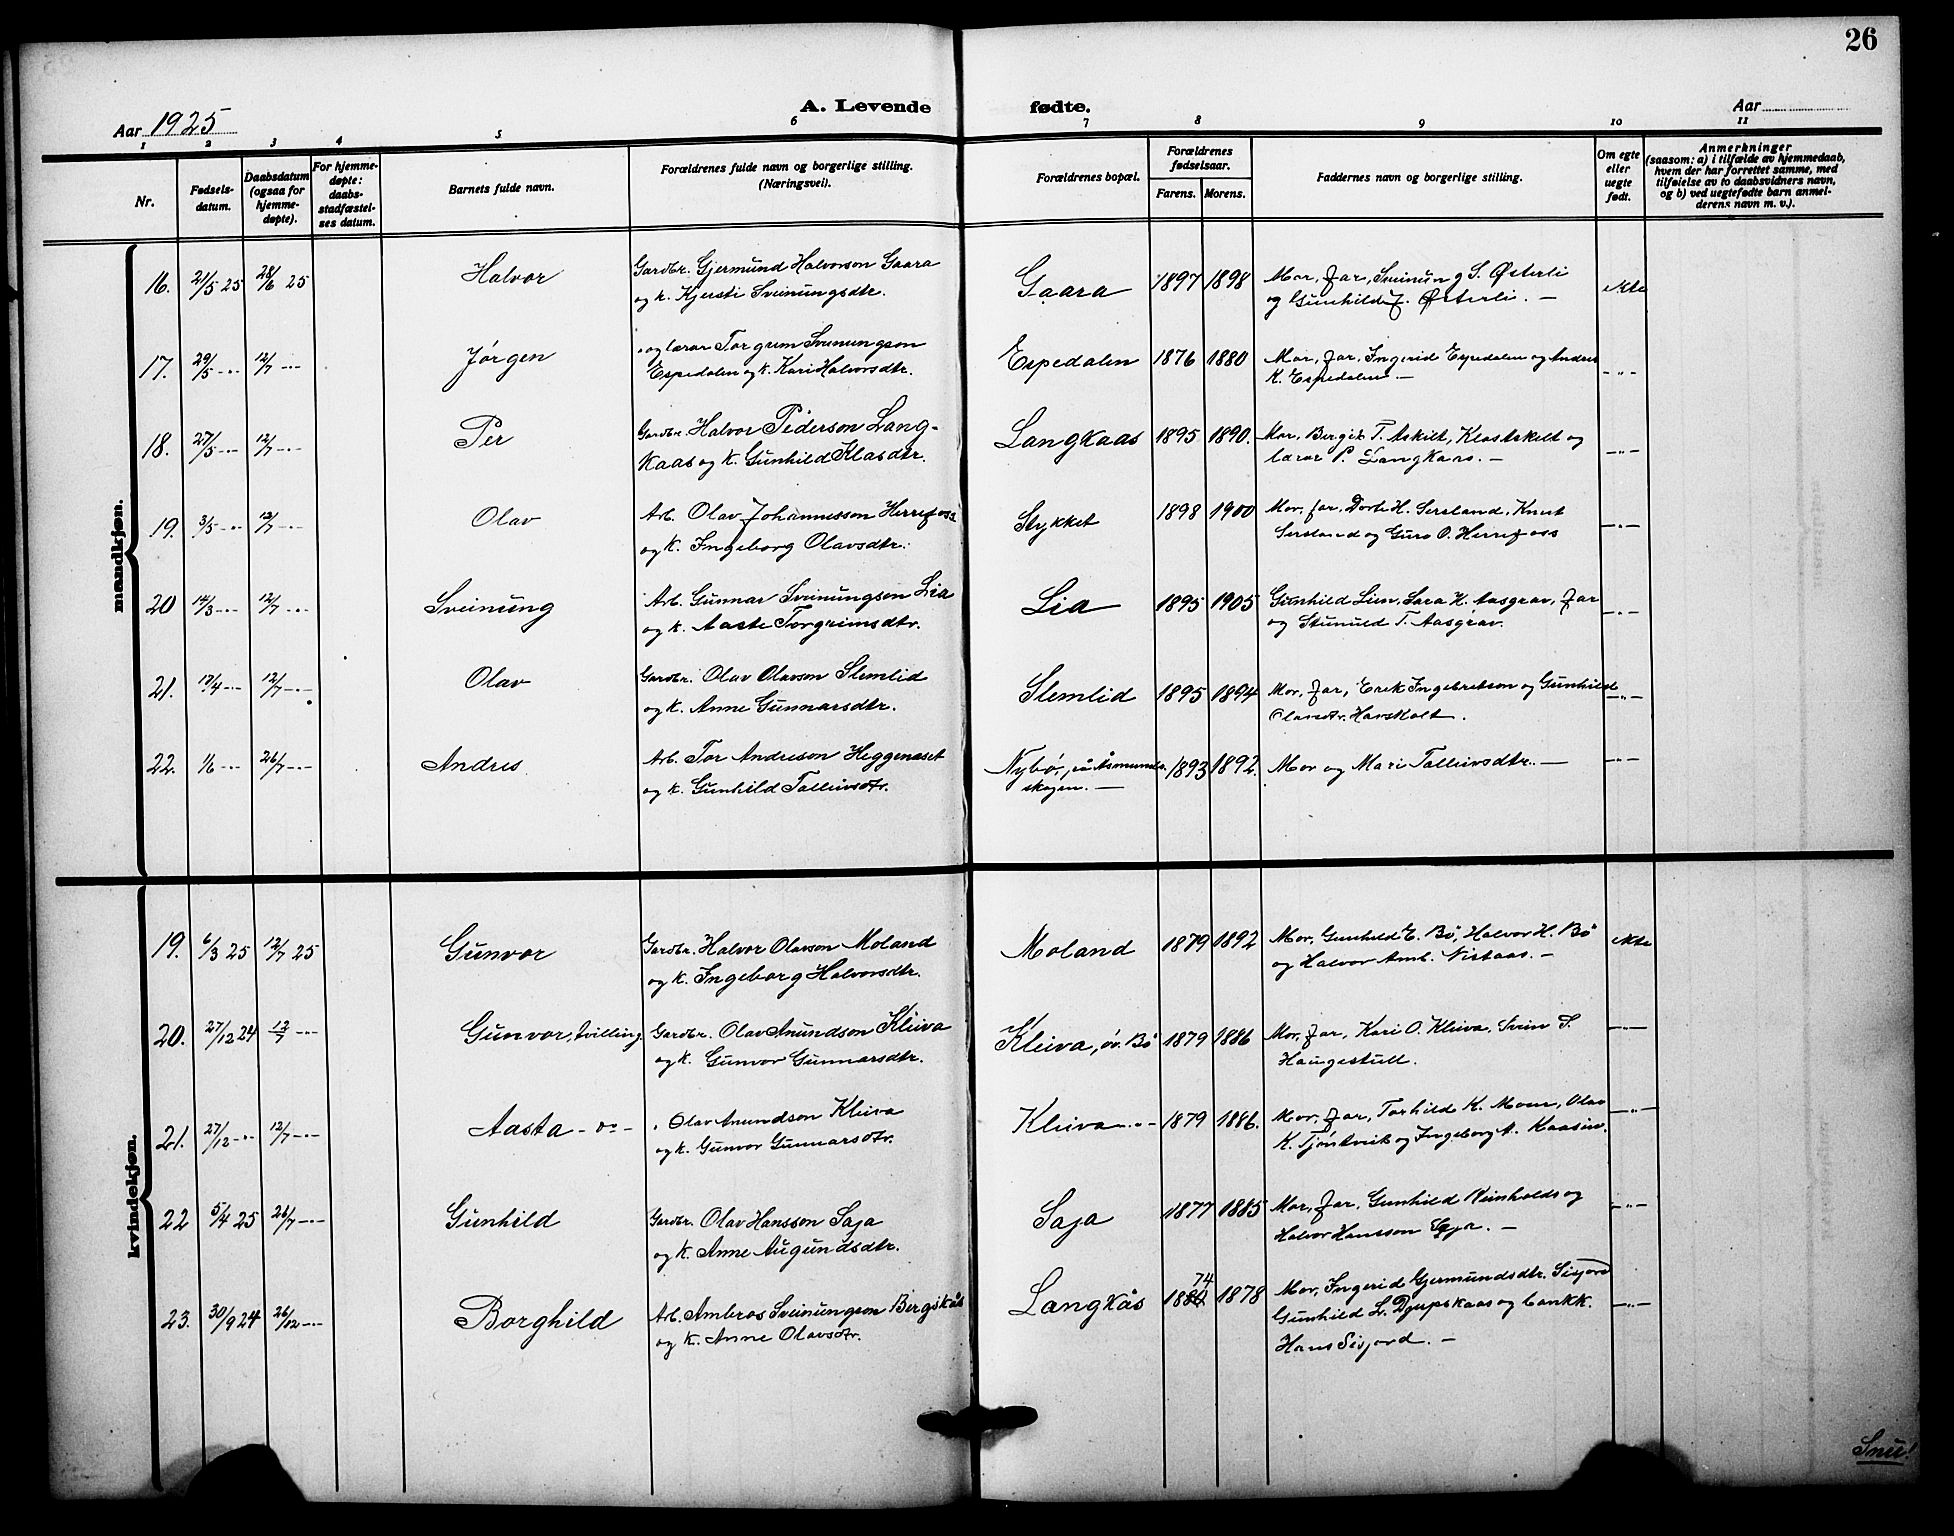 26
A. Levende fødte.
Aar 1925
Aar
1 2 3 4 5 6 7 8 9 10 11
Nr.
Fødsels-
datum.
Daabsdatum
(ogsaa for
hjemme-
døpte).
For hjemme-
døpte:
daabs-
stadfæstel-
ses datum.
Barnets fulde navn.
Forældrenes fulde navn og borgerlige stilling.
(Næringsvei).
Forældrenes bopæl.
Forældrenes
fødselsaar.
Farens. Morens.
Faddernes navn og borgerlige stilling.
Om egte
eller
uegte
født.
Anmerkninger
(saasom: a) i tilfælde av hjemmedaab,
hvem der har forrettet samme, med
tilføielse av to daabsvidners navn,
og b) ved uegtefødte barn anmel-
derens navn m. v.).
mandkjøn.
16. 21/5 25 28/6 25 Halvor Gardbr. Gjermund Halvorson Gaara Gaara 1897 1898 Mor, far, Sveinung S. Østerli ekte
og k. Kjersti Sveinungsdtr. og Gunhild J. Østerli. —
17. 29/5 -"- 12/7 -"- Jørgen " og lærar Torgrim Sveinungson Espedalen 1876 1880 Mor, far, Ingerid Espedalen og Andres -"-
Espedalen og k. Kari Halvorsdtr. K. Espedalen —
18. 27/5 -"- 12/7 -"- Per Gardbr. Halvor Pederson Lang- Langkaas 1895 1890. Mor, Bergit T. Askilt, Klas Askilt og -"-
kaas og k. Gunhild Klasdtr. lærar P. Langkaas. —
19. 3/5 -"- 12/7 -"- Olav Arb. Olav Johannesson Herrefoss Stykket 1898 1900 Mor, far, Dorte H. Sersland, Knut -"-
og k. Ingeborg Olavsdtr. Sersland og Guro O. Herrefoss
20 14/3 -"- 12/7 -"- Sveinung Arb. Gunnar Sveinungson Lia Lia 1895 1905 Gunhild Lien, Sara K. Aasgrav, far -"-
og k. Aaste Torgrimsdtr. og T. Aasgrav.
21. 17/4 -"- 12/7 -"- Olav Gardbr. Olav Olavson Slemlid Slemlid 1895 1894 Mor, far, Erik Ingebretson og Gunhild -"-
og k. Anne Gunnarsdtr. Olavsdtr. Havskolt.
22. 1/6 -"- 26/7 -"- Andres Arb. Tor Andreson Heggenæset Nybø, på Åsmunds- 1893 1892. Mor og Mari Talleivsdtr. — -"-
og k. Gunhild Talleivsdtr. skogen. —
kvindekjøn.
19. 6/3 25 12/7 25 Gunvor Gardbr. Halvor Olavson Moland Moland 1879 1892 Mor, Gunhild E. Bø, Halvor H. Bø ekte
og k. Ingeborg Halvorsdtr. og Halvor Amb. Nistaas. —
20. 27/12 24 12/7 -"- Gunvor, tvilling. Gardbr. Olav Anundson Kleiva Kleiva, øv. Bø 1879 1886 Mor, far, Kari O. Kleiva, Svein S. -"-
og k. Gunvor Gunnarsdtr. Haugestull.
21. 27/12 -"- 12/7 -"- Aasta - do - " Olav Anundson Kleiva Kleiva -"- 1879 1886. Mor, far, Torhild K. Moen, Olav -"-
og k. Gunvor Gunnarsdtr. K. Tjønkvik og Ingeborg A. Kaasin.
22 5/4 25 26/7 -"- Gunhild Gardbr. Olav Hansson Saga Saga 1877 1885 Mor, far, Gunhild Reinholds og -"-
og k. Anne Augundsdtr. Halvor Hansson —
23. 30/9 24 26/12 -"- Borghild Arb. Ambros Sveinungson Bergskås Langkås 1884 74 1878 Mor, Ingerid Gjermundsdtr. Sisjord -"-
og k. Anne Olavsdtr. Gunhild L. Djupskaas og bankk.
Hans Sisjord. —
Snu!